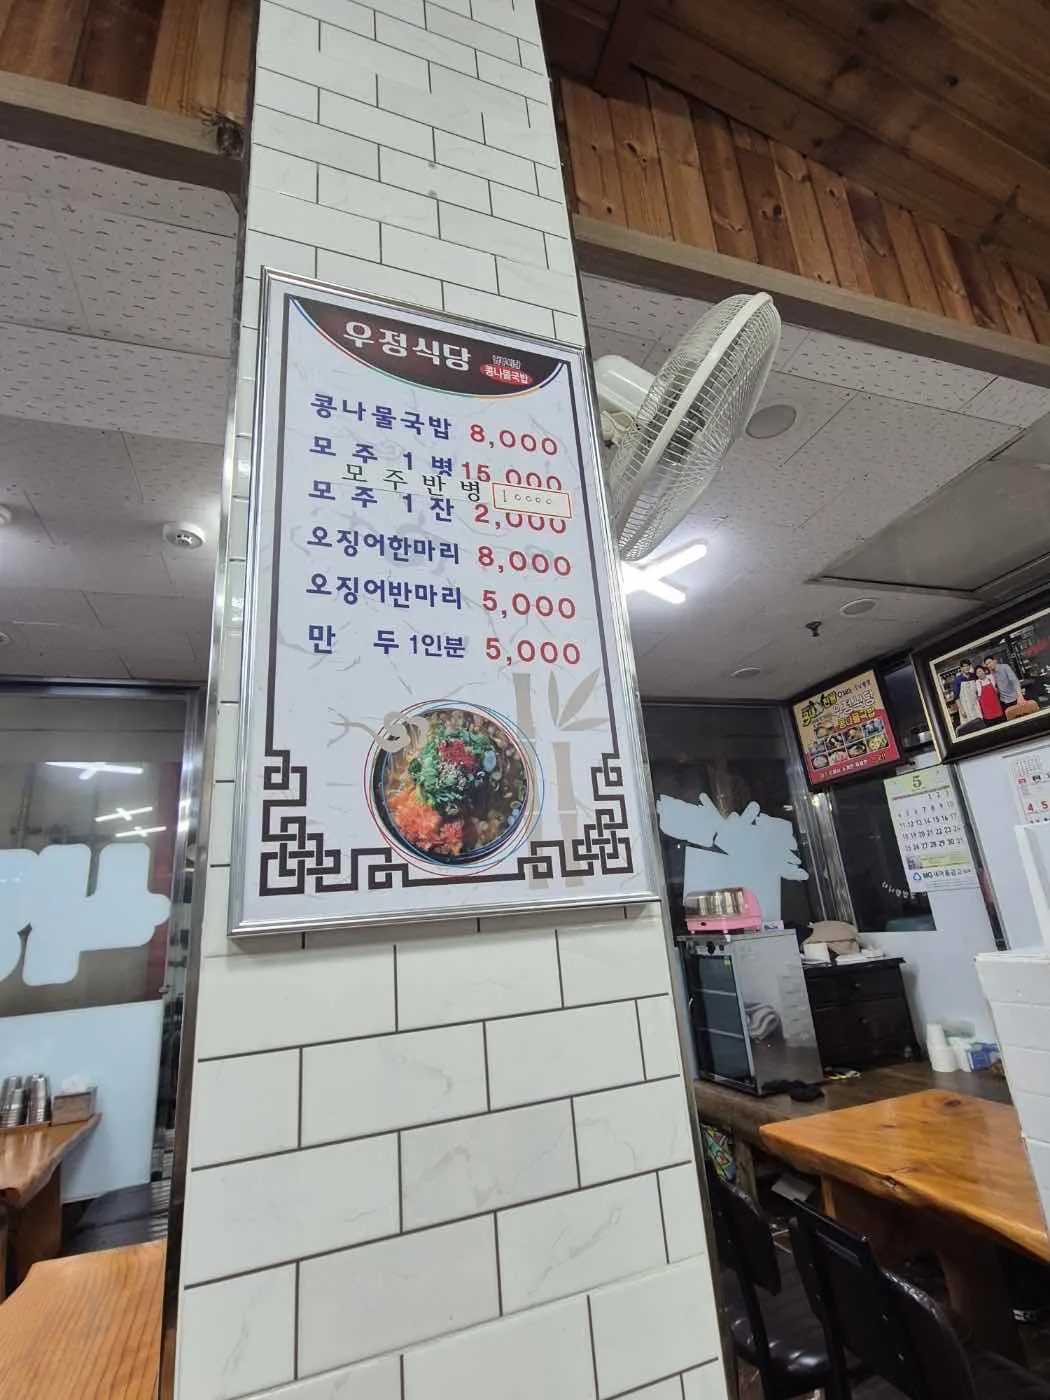 우정식당
콩나물국밥
콩나물국밥 8,000
모 주 1 병 15,000
모 주 반 병 10000
모 주 1 잔 2,000
오징어한마리 8,000
오징어반마리 5,000
만 두 1인분 5,000
5
MG새마을금고
4 5